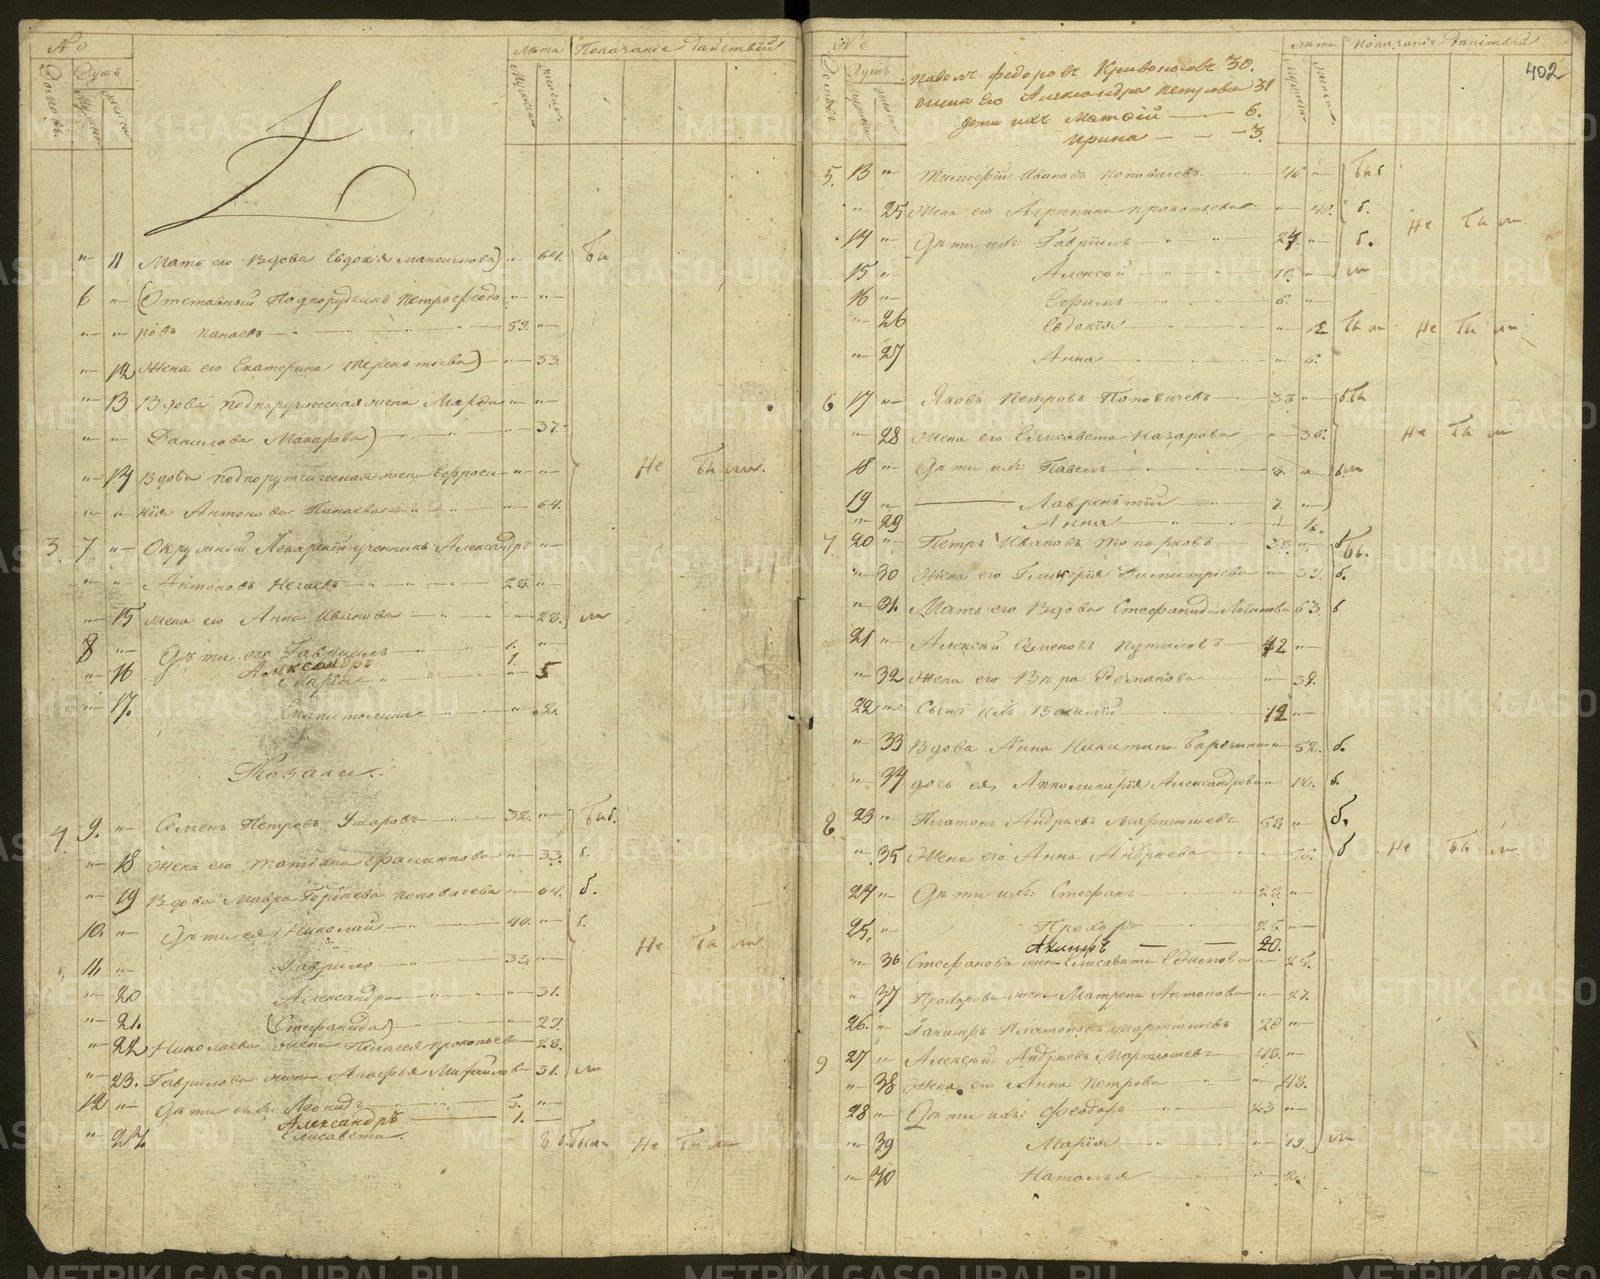 №
Домовъ.
Душъ
Лѣта
Показаніе дѣйствій
" 11 Мать его Вдова Евдокія Максимова) " 64. Бы
6 " (Отставный Подпоручикъ Петръ Ѳеодо- " "
" " ровъ Панаевъ 59. "
" 12 Жена его Екатерина Терентьева) " 33.
" 13 Вдова подпоручическая жена Марѳа " "
" " Данилова Макарова) " 37.
" 14 Вдова подпоручическая жена Евфроси- " " Не Бы ли.
" " нія Антонова Панаева " 64.
3 7 " Окружный Лекарскій ученикъ Александръ " "
" " Антоновъ Нечаевъ 28. "
" 15 жена его Анна Иванова " 28. ли
8 " Дѣти его Гавріилъ 6. "
Александръ 1.
" 16 Марія " 5
" 17. Капитолина " 2.
Козаки.
4 9. " Семенъ Петровъ Ушаровъ 38. " Быб.
" 18 Жена его Татіана Филиппова " 33. б.
" 19 Вдова Мавра Гордѣева Поповичева " 64. б.
10. " Дѣти ея: Николай 40. " б.
Не Бы ли.
11. " Гаврило 35. "
" 20 Александра " 31.
" 21. (Стефанида) " 29.
" 22 Николаева жена Пелагея Прокопьева 28.
" 23. Гаврилова жена Агафья Михайлова 31. ли
12 " Дѣти ихъ: Леонидъ 5. "
Александръ 1.
" 24. Елисавета 8 б. Были Не Бы ли
№
Домовъ
Душъ
Лѣта
Показаніе дѣйствій
402
Павелъ Федоровъ Кривоноговъ 30.
жена его Александра Петрова 31
дети ихъ Матѳій 6.
Ирина 3.
5. 13 " Тимофей Ивановъ Поповичевъ 46 " Быб
" 25 Жена его Агрипина Прокопьева " 40. б.
Не Бы ли
14 " Дѣти ихъ: Гавріилъ 24 " б.
15 " Алексѣй 10. " ли
16 " Ефимъ 6. "
" 26 Евдокія " 12 Бы ли Не Бы ли
" 27 Анна " 6.
6 17 " Яковъ Петровъ Поповичевъ 38 " б.Бы
" 28 Жена его Елисавета Назарова " 36. Не Бы ли
18 " Дѣти ихъ: Павелъ 8. " б.ли
19 " Лаврентій 7. "
" 29 Анна " 1.
7. 20 " Петръ Ивановъ Топорковъ 38. " б Бы.
" 30 Жена его Гликерія Димитріева " 39. б.
" 31. Мать его Вдова Стефанида Логинова 63. б
21 " Алексѣй Семеновъ Путиловъ 42 "
" 32 Жена его Вѣра " 38.
22 " Сынъ ихъ Василій 12 "
" 33 Вдова Анна Никитина " 52. б.
" 34 дочь ея, Апполинарія Александрова " 18. б.
8. 23 " Платонъ Андреевъ Мартюшевъ 58 " б.
" 35 Жена его Анна Андреева " 50. б Не Бы ли
24 " Дѣти ихъ: Стефанъ 28. "
25. " Прохоръ 25. "
Акимъ 20.
" 36 Стефанова жена Елисавета " 25.
" 37 Прохорова жена Матрена Антонова " 27.
26. " Платоновъ Мартюшевъ 20 "
9 27 " Алексѣй Андреевъ Мартюшевъ 48. "
" 38 Жена его Анна Петрова " 48.
28 " Дѣти ихъ: Феодоръ 23 "
" 39 Марія " 19. ли
" 40 Наталья " 2.